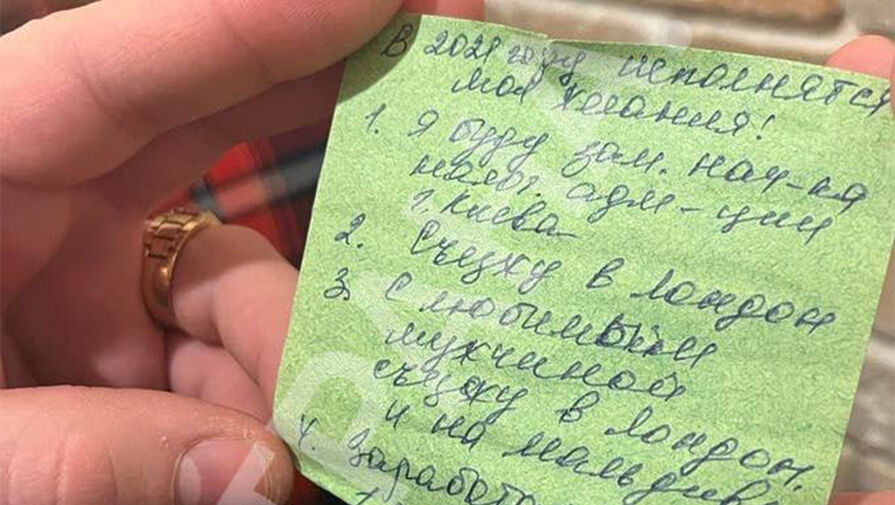 В 2021 году исполнятся
мои желания!
1. Я буду зам. нач-ка
налог. адм-ции
г. Киева
2. Съезжу в Лондон
3. С любимым
мужчиной
съезжу в Лондон.
и на Мальдив
4. Зарабо